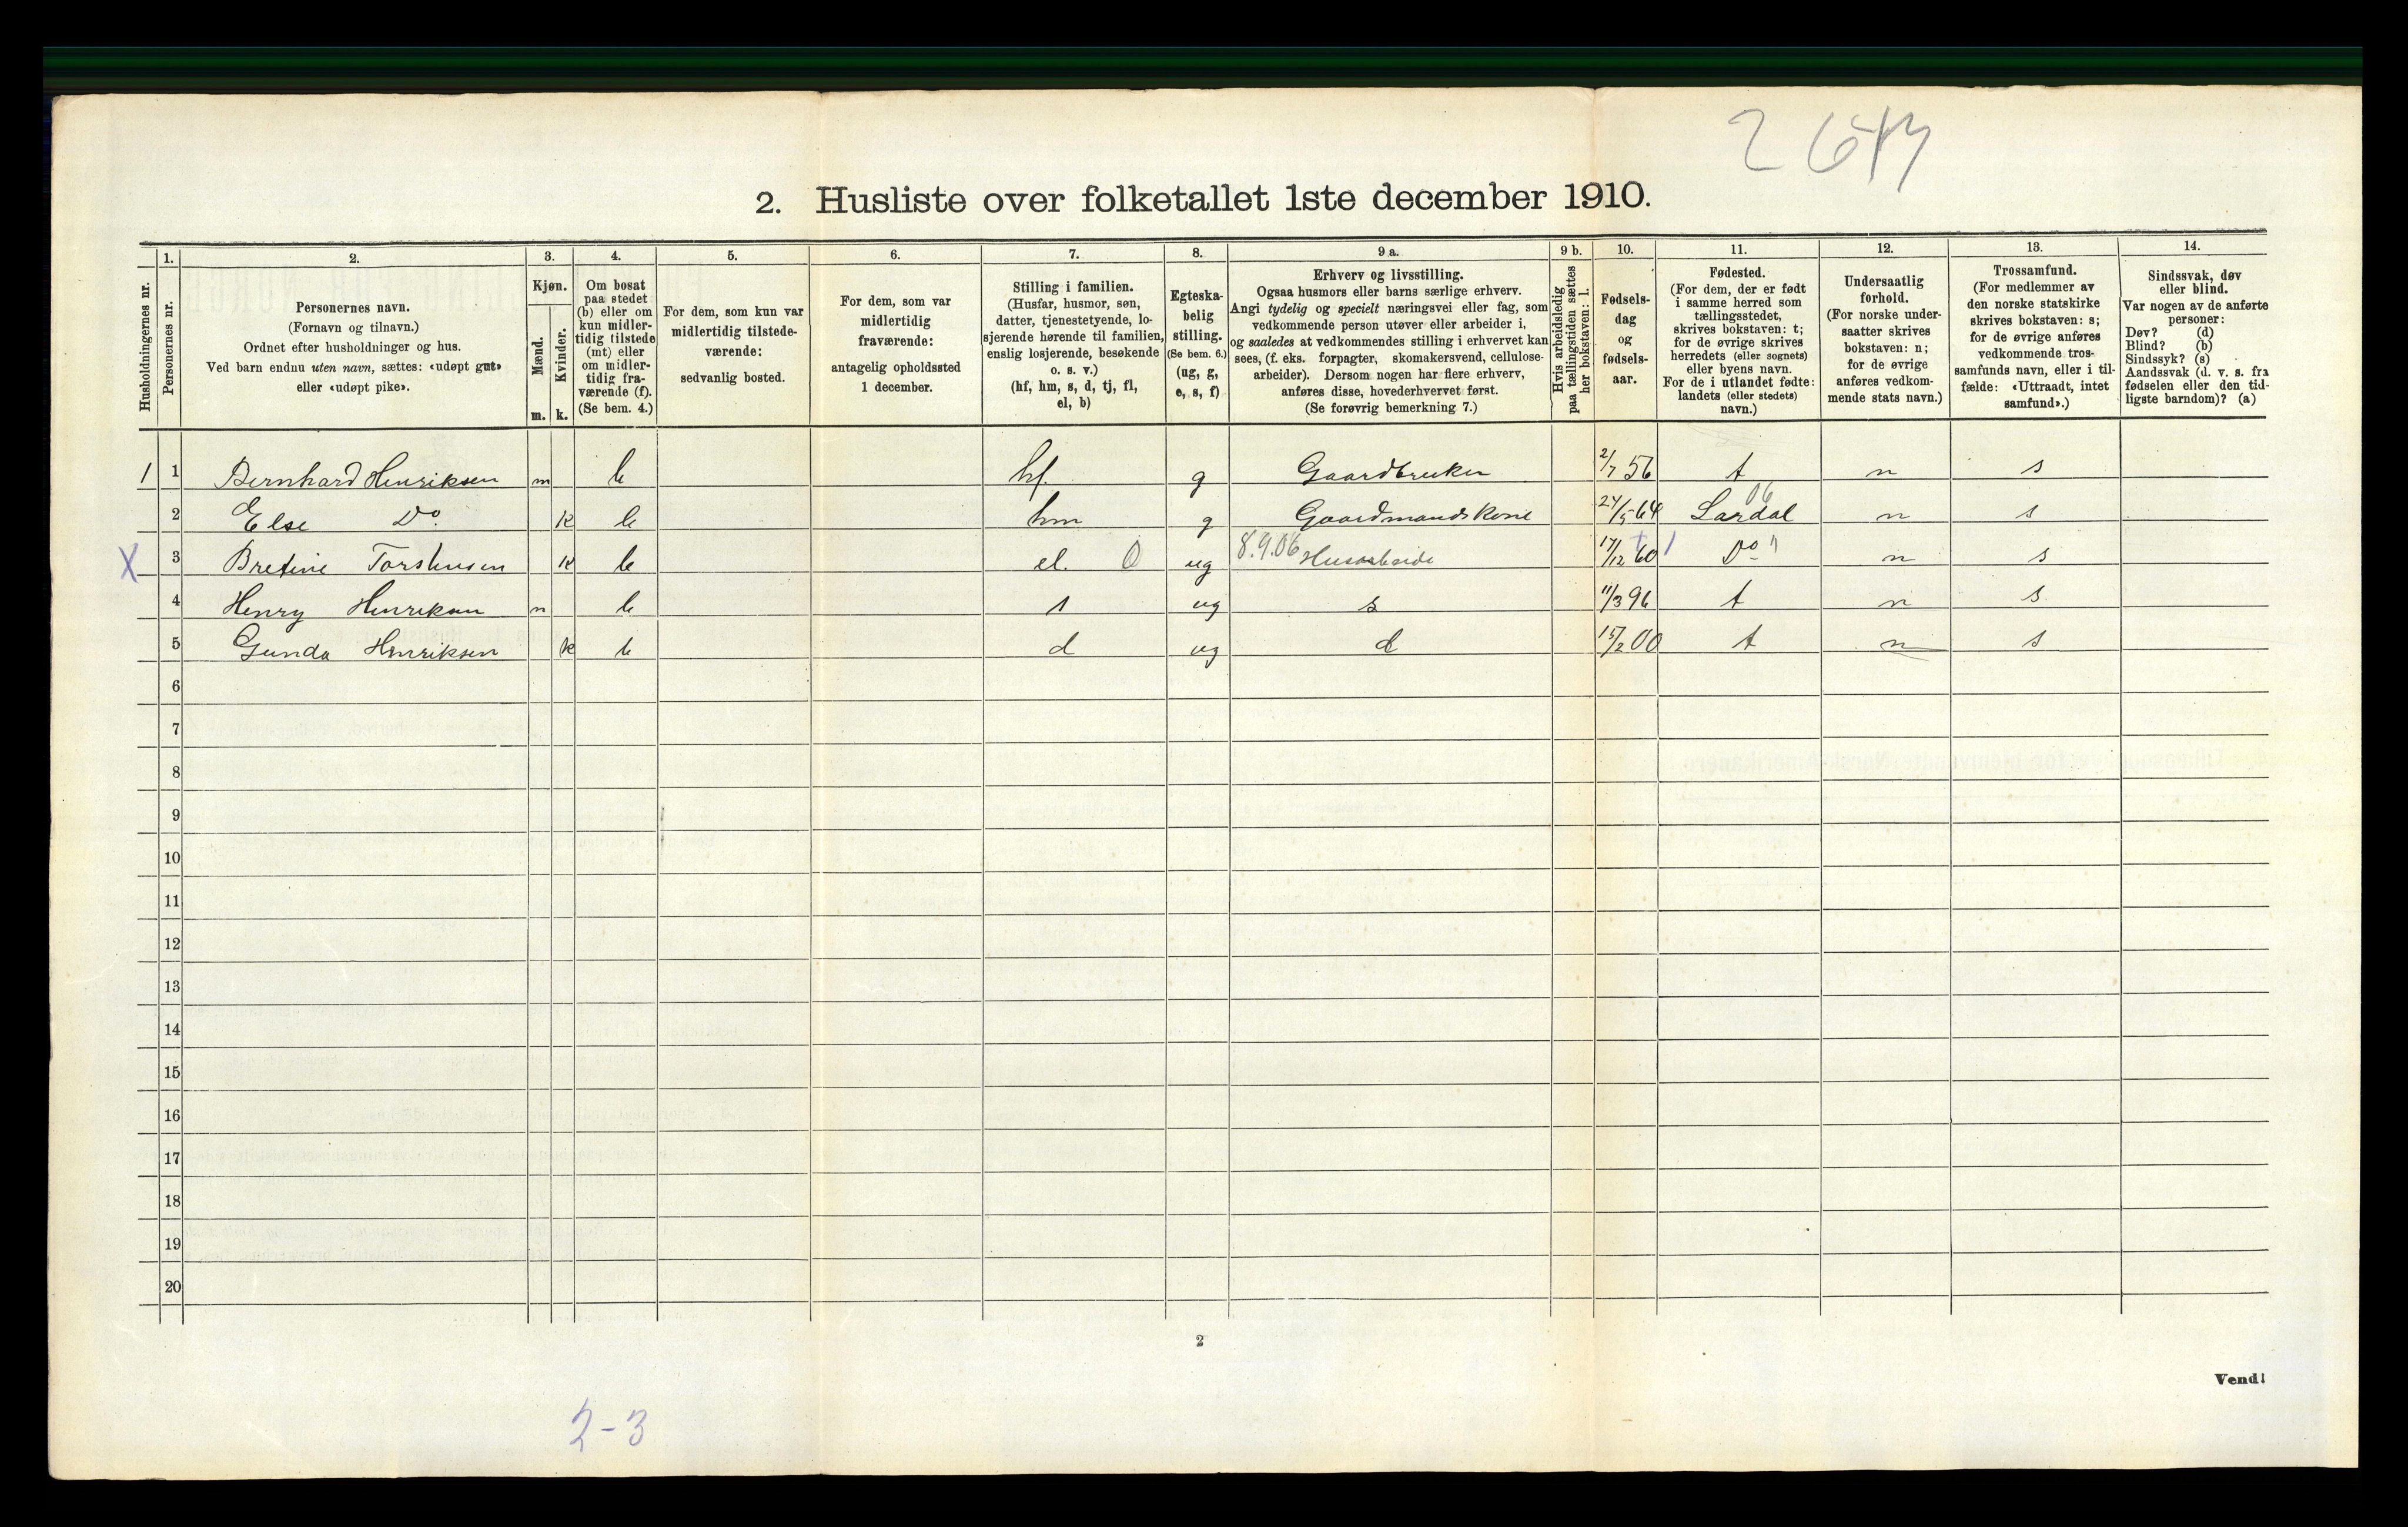 2. Husliste over folketallet 1ste december 1910.
Husholdningernes nr.
1.
Personernes nr.
2.
Personernes navn.
(Fornavn og tilnavn.)
Ordnet efter husholdninger og hus.
Ved barn endnu uten navn, sættes: «udøpt gut»
eller «udøpt pike».
3.
Kjøn.
Mænd.
Kvinder.
m. k.
4.
Om bosat
paa stedet
(b) eller om
kun midler-
tidig tilstede
(mt) eller
om midler-
tidig fra-
værende (f).
(Se bem. 4.)
5.
For dem, som kun var
midlertidig tilstede-
værende:
sedvanlig bosted.
6.
For dem, som var
midlertidig
fraværende:
antagelig opholdssted
1 december.
7.
Stilling i familien.
(Husfar, husmor, søn,
datter, tjenestetyende, lo-
sjerende hørende til familien,
enslig losjerende, besøkende
o. s. v.)
(hf, hm, s, d, tj, fl,
el, b)
8.
Egteska-
belig
stilling.
(Se bem. 6.)
(ug, g,
e, s, f)
9 a.
Erhverv og livsstilling.
Ogsaa husmors eller barns særlige erhverv.
Angi tydelig og specielt næringsvei eller fag, som
vedkommende person utøver eller arbeider i,
og saaledes at vedkommendes stilling i erhvervet kan
sees, (f. eks. forpagter, skomakersvend, cellulose-
arbeider). Dersom nogen har flere erhverv,
anføres disse, hovederhvervet først.
(Se forøvrig bemerkning 7.)
9 b.
Hvis arbeidsledig
paa tællingstiden sættes
her bokstaven: l.
10.
Fødsels-
dag
og
fødsels-
aar.
11.
Fødested.
(For dem, der er født
i samme herred som
tællingsstedet,
skrives bokstaven: t;
for de øvrige skrives
herredets (eller sognets)
eller byens navn.
For de i utlandet fødte:
landets (eller stedets)
navn.)
12.
Undersaatlig
forhold.
(For norske under-
saatter skrives
bokstaven: n;
for de øvrige
anføres vedkom-
mende stats navn.)
13.
Trossamfund.
(For medlemmer av
den norske statskirke
skrives bokstaven: s;
for de øvrige anføres
vedkommende tros-
samfunds navn, eller i til-
fælde: «Uttraadt, intet
samfund».)
14.
Sindssvak, døv
eller blind.
Var nogen av de anførte
personer:
Døv? (d)
Blind? (b)
Sindssyk? (s)
Aandssvak (d. v. s. fra
fødselen eller den tid-
ligste barndom)? (a)
1 1 Bernhard Henriksen m b hf. g Gaardbruker 2/7 56 t n s
2 Else Do k b hm g Gaardmandskone 24/5 64 Lardal 06 n s
X 3 Bretine Torstensen k b el. 0 ug 8.9.06 Husarbeide 17/12 60 Do " n s
4 Henry Henriksen m b s ug s 11/3 96 t n s
5 Gunda Henriksen k b d ug d 15/2 00 t n s
6
7
8
9
10
11
12
13
14
15
16
17
18
19
20
2
Vend!
2-3